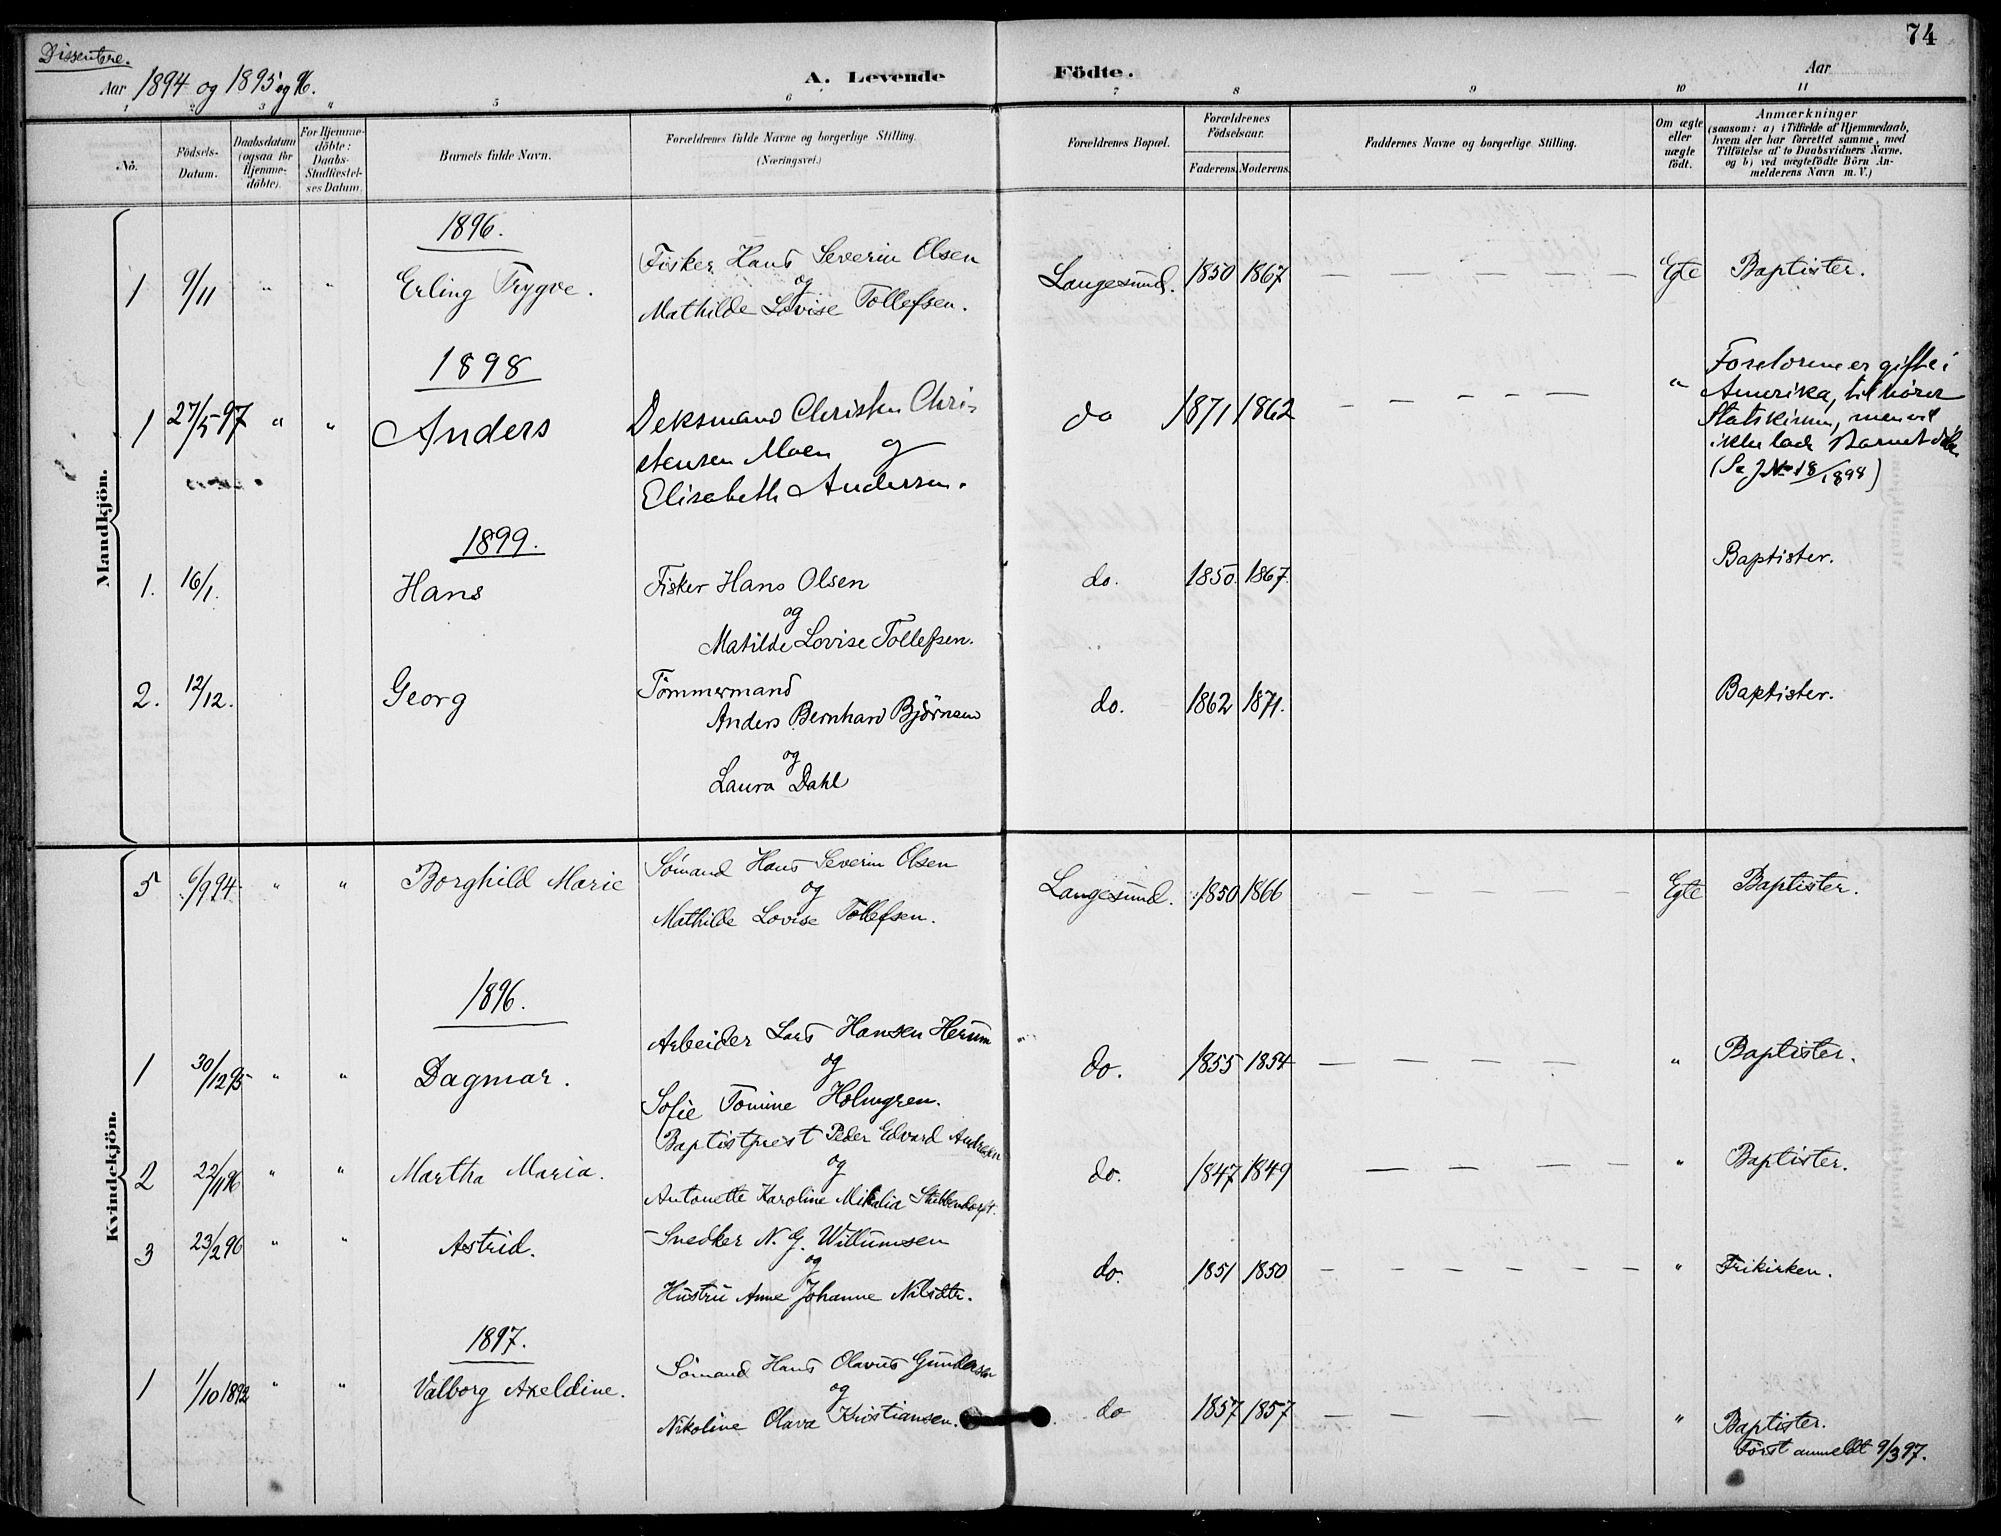 74
Dissentere.
Aar 1894 og 1895 og 96.
A. Levende Födte.
Aar
1 2 3 „ 5 6 7 8 9 10 11
No.
Födsels-Datum.
Daabsdatum (ogsaa for Hjemmedöbte).
For Hjemmedöbte: Daabs-Stadfæstelses Datum.
Barnets fulde Navn.
Forældrenes fulde Navne og borgerlige Stilling. (Næringsvei.)
Forældrenes Bopæl.
Forældrenes Födselsaar.
Faderens. Moderens.
Faddernes Navne og borgerlige Stilling.
Om ægte eller uægte födt.
Anmærkninger
(saasom: a) i Tilfælde af Hjemmedaab,
hvem der har forrettet samme, med
Tilföielse af to Daabsvidners Navne.
og b) ved uægtefödte Börn Anmelderens Navn m. V.)
Mandkjön.
1896.
1 9/11 " " Erling Trygve. Fisker Hans Severin Olsen
og
Mathilde Lovise Tollefsen. Langesund. 1850 1867 — — — Egte Baptister.
1898
1 27/5 97 " " Anders Deksmand Christen Chri-
stensen Moen og
Elisabeth Andersen. do 1871 1862 — — — "
Foreldrene er gifte i
Amerika, tilhører
Statskirken, men vil
ikke lade Barnet døbe
(Se J No 18/1898)
1899.
1. 16/1. Hans Fisker Hans Olsen
og
Matilde Lovise Tollefsen. do. 1850. 1867. Baptister.
2. 12/12. Georg Tömmermand
Anders Bernhard Björnsen
og
Laura Dahl do. 1862 1871. Baptister.
Kvindekjön.
5 6/9 94 " " Borghild Marie Sömand Hans Severin Olsen
og
Mathilde Lovise Tollefsen. Langesund. 1850 1866 — — — Egte Baptister.
1896.
1 30/12 95 " " Dagmar. Arbeider Lars Hansen Herum
og
Sofie Tomine Holmgren. do. 1855 1854 — — — " Baptister.
2 22/1 96 " " Martha Maria. Baptistprest Peder Edvard Andresen
og
Antonette Karoline Mikalia do. 1847 1849 — — — " Baptister.
3 23/2 96 " " Astrid. Snedker N. G. Willumsen
og
Hustru Anne Johanne Nilsdtr. do. 1851 1850 — — — " Frikirken.
1897.
1 1/10 1892 " " Valborg Axeldine. Sömand Hans Olavus Gundersen
og
Nikoline Olava Kristiansen. do 1857 1857 — — — " Baptister.
Först anmeldt 9/3 97.